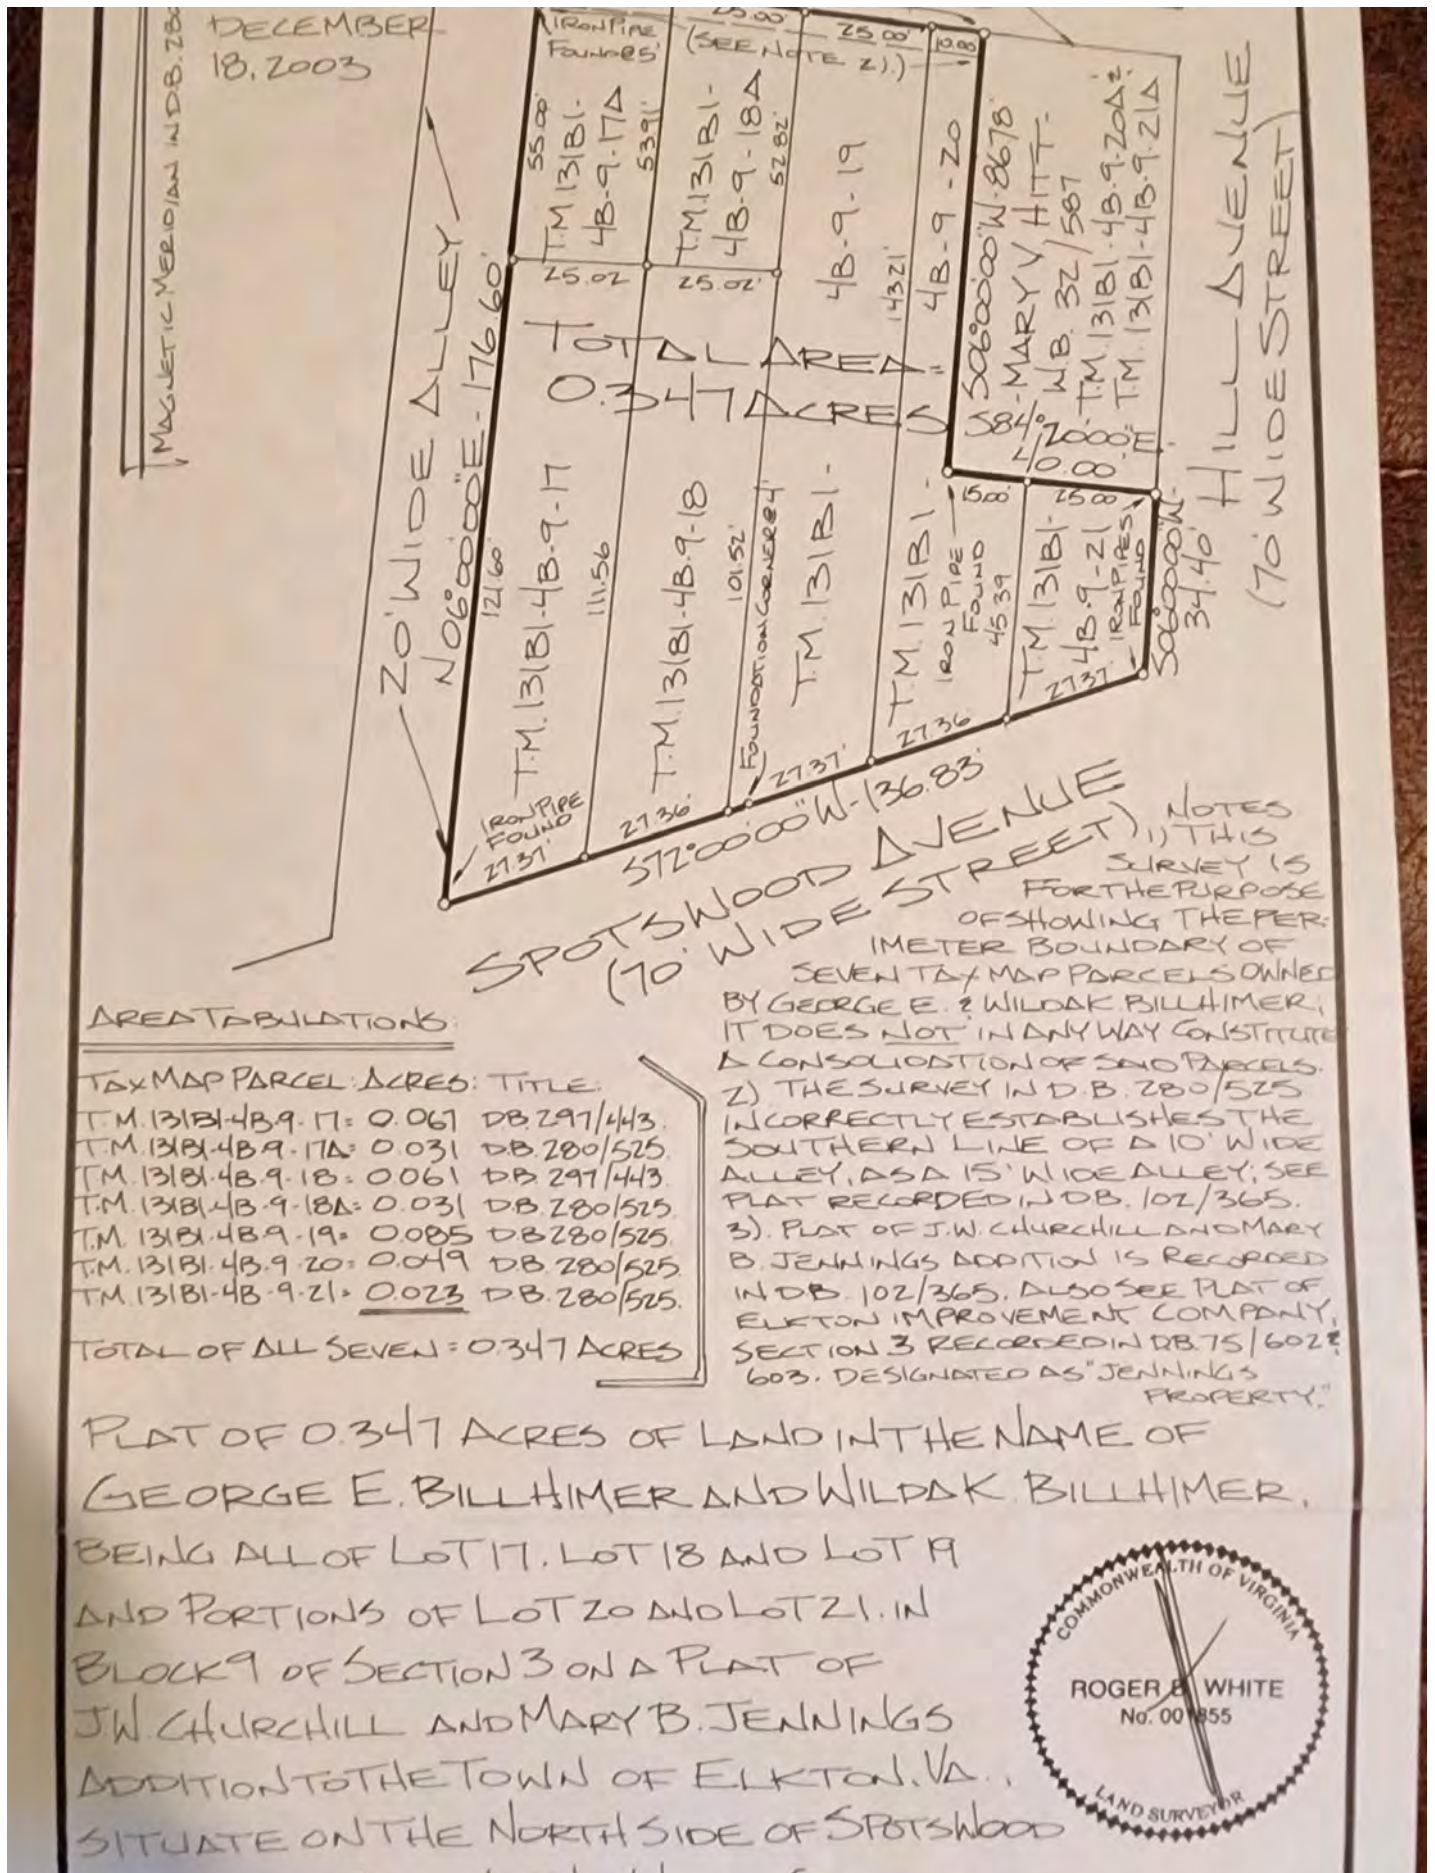 DECEMBER
18, 2003
MAGNETIC MERIDIAN IN D.B. 280
IRON PIPE
FOUND @ 5'
25.00'
(SEE NOTE 2).)
25.00'
10.00'
55.00'
T.M. 131B1-
4B-9-17A
53.91'
T.M. 131B1-
4B-9-18A
52.82'
4B-9-19
143.21'
4B-9-20
S06°00'00"W-86.78'
MARY V. HITT
W.B. 32/587
T.M. 131B1-4B-9-20A &
T.M. 131B1-4B-9-21A
HILL AVENUE
(70' WIDE STREET)
20' WIDE ALLEY
N06°00'00"E-176.60'
25.02
25.02'
TOTAL AREA =
0.347 ACRES
S84°20'00"E-
40.00'
15.00'
25.00
121.60'
T.M. 131B1-4B-9-17
111.56
T.M. 131B1-4B-9-18
101.52'
FOUNDATION CORNER @ 4'
T.M. 131B1-
T.M. 131B1-
IRON PIPE
FOUND
45.39
T.M. 131B1-
4B-9-21
IRON PIPES
FOUND
S06°00'00"W-
34.40'
IRON PIPE
FOUND
27.37'
27.36'
27.37'
27.36
27.37
S72°00'00"W-136.83'
SPOTSWOOD AVENUE
(70' WIDE STREET)
NOTES
1) THIS
SURVEY IS
FOR THE PURPOSE
OF SHOWING THE PER-
IMETER BOUNDARY OF
SEVEN TAX MAP PARCELS OWNED
BY GEORGE E. & WILDA K. BILLHIMER,
IT DOES NOT IN ANY WAY CONSTITUTE
A CONSOLIDATION OF SAID PARCELS.
2) THE SURVEY IN D.B. 280/525
INCORRECTLY ESTABLISHES THE
SOUTHERN LINE OF A 10' WIDE
ALLEY, AS A 15' WIDE ALLEY; SEE
PLAT RECORDED IN D.B. 102/365.
3). PLAT OF J.W. CHURCHILL AND MARY
B. JENNINGS ADDITION IS RECORDED
IN D.B. 102/365. ALSO SEE PLAT OF
ELKTON IMPROVEMENT COMPANY,
SECTION 3 RECORDED IN D.B. 75/602 &
603. DESIGNATED AS "JENNINGS
PROPERTY."
AREA TABULATIONS:
TAX MAP PARCEL: ACRES: TITLE:
T.M. 131B1-4B-9-17= 0.067 D.B. 297/443.
T.M. 131B1-4B-9-17A= 0.031 D.B. 280/525.
T.M. 131B1-4B-9-18= 0.061 D.B. 297/443.
T.M. 131B1-4B-9-18A= 0.031 D.B. 280/525.
T.M. 131B1-4B-9-19= 0.085 D.B. 280/525.
T.M. 131B1-4B-9-20= 0.049 D.B. 280/525.
T.M. 131B1-4B-9-21= 0.023 D.B. 280/525.
TOTAL OF ALL SEVEN = 0.347 ACRES
PLAT OF 0.347 ACRES OF LAND IN THE NAME OF
GEORGE E. BILLHIMER AND WILDA K. BILLHIMER,
BEING ALL OF LOT 17, LOT 18 AND LOT 19
AND PORTIONS OF LOT 20 AND LOT 21, IN
BLOCK 9 OF SECTION 3 ON A PLAT OF
J.W. CHURCHILL AND MARY B. JENNINGS
ADDITION TO THE TOWN OF ELKTON, VA.,
SITUATE ON THE NORTH SIDE OF SPOTSWOOD
COMMONWEALTH OF VIRGINIA
ROGER B. WHITE
No. 001855
LAND SURVEYOR